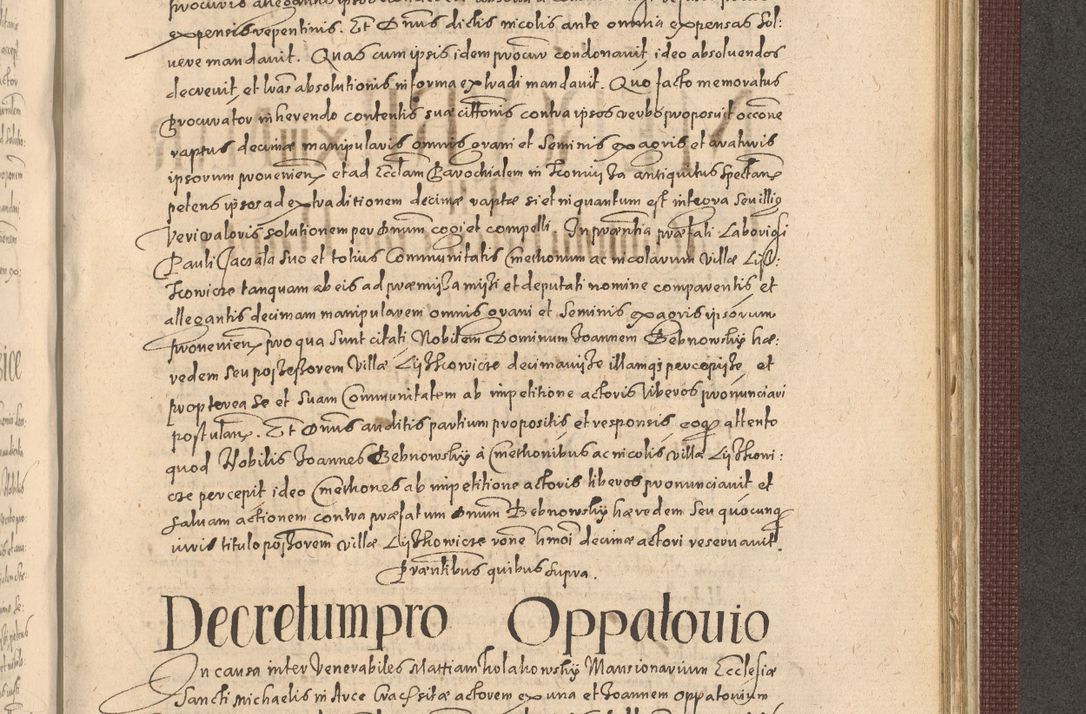 expensis repentinis. Et Dnus dictis nicolis ante omnia expensas sol:
uere mandauit. Quas cum ipsis idem procur condonauit, ideo absoluendos
decreuit, et lras absolutionis in forma extradi mandauit. Quo facto memoratus
Procurator inherendo contentis suæ cittonis contra ipsos verbo proposuit occone
raptus decimæ manipularis omnis grani et seminis ex agris et araturis
ipsorum prouenien et ad Ecclam Parochialem in antiquitus spectan
petens ipsos ad extraditionem decimæ raptæ si et in quantum est integra seu illiq
veri valoris solutionem per Dnum cogi et compelli. In præntia præfati Laborioси
Pauli Jaczala suo et totius Communitatis Cmethonum ac nicolarum villæ Lisz:
kowicze tanquam ab eis ad præmissa missi et deputati nomine comparentis et
allegantis decimam manipularem omnis grani et seminis ex agris ipsorum
prouenien pro qua sunt citati Nobilem Dominum Joannem Bebnowsky hæ:
redem seu possessorem villæ Lyszkowicze decimauisse illamq percepisse, et
propterea se et suam Communitatem ab impetitione actoris liberos pronunciari
postulan. Et Dnus auditis partium propositis et responsis eoq attento
quod Nobilis Joannes Bebnowsky à Cmethonibus ac nicolis villæ Lyszkoui:
cze percepit ideo Cmethones ab impetitione actoris liberos pronunciauit et
saluam actionem contra præfatum Dnum Bebnowsky hæredem seu quocunq
iuris titulo possorem villæ Lyszkowicze rone hmoi decimæ actori reseruauit.
Præntibus quibus supra.
Decretum pro Oppatouio
In causa inter Venerabiles Mattiam Kolakowsky Mansionarium Ecclesiæ
Sancti Michaelis in Arce Cracsita actorem ex una et Joannem Oppatouium